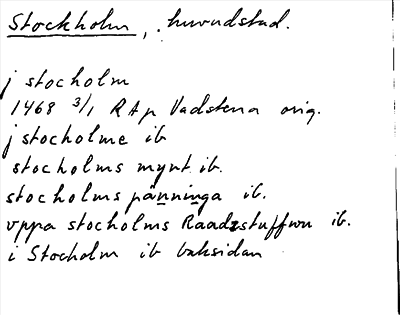 Stockholm, huvudstad.
j stocholm
1468 3/1 RAp Vadstena orig.
j stocholme ib
stocholms mynt ib.
stocholms pänninga ib.
vppa stocholms Raadzstuffwu ib.
i Stocholm ib baksidan